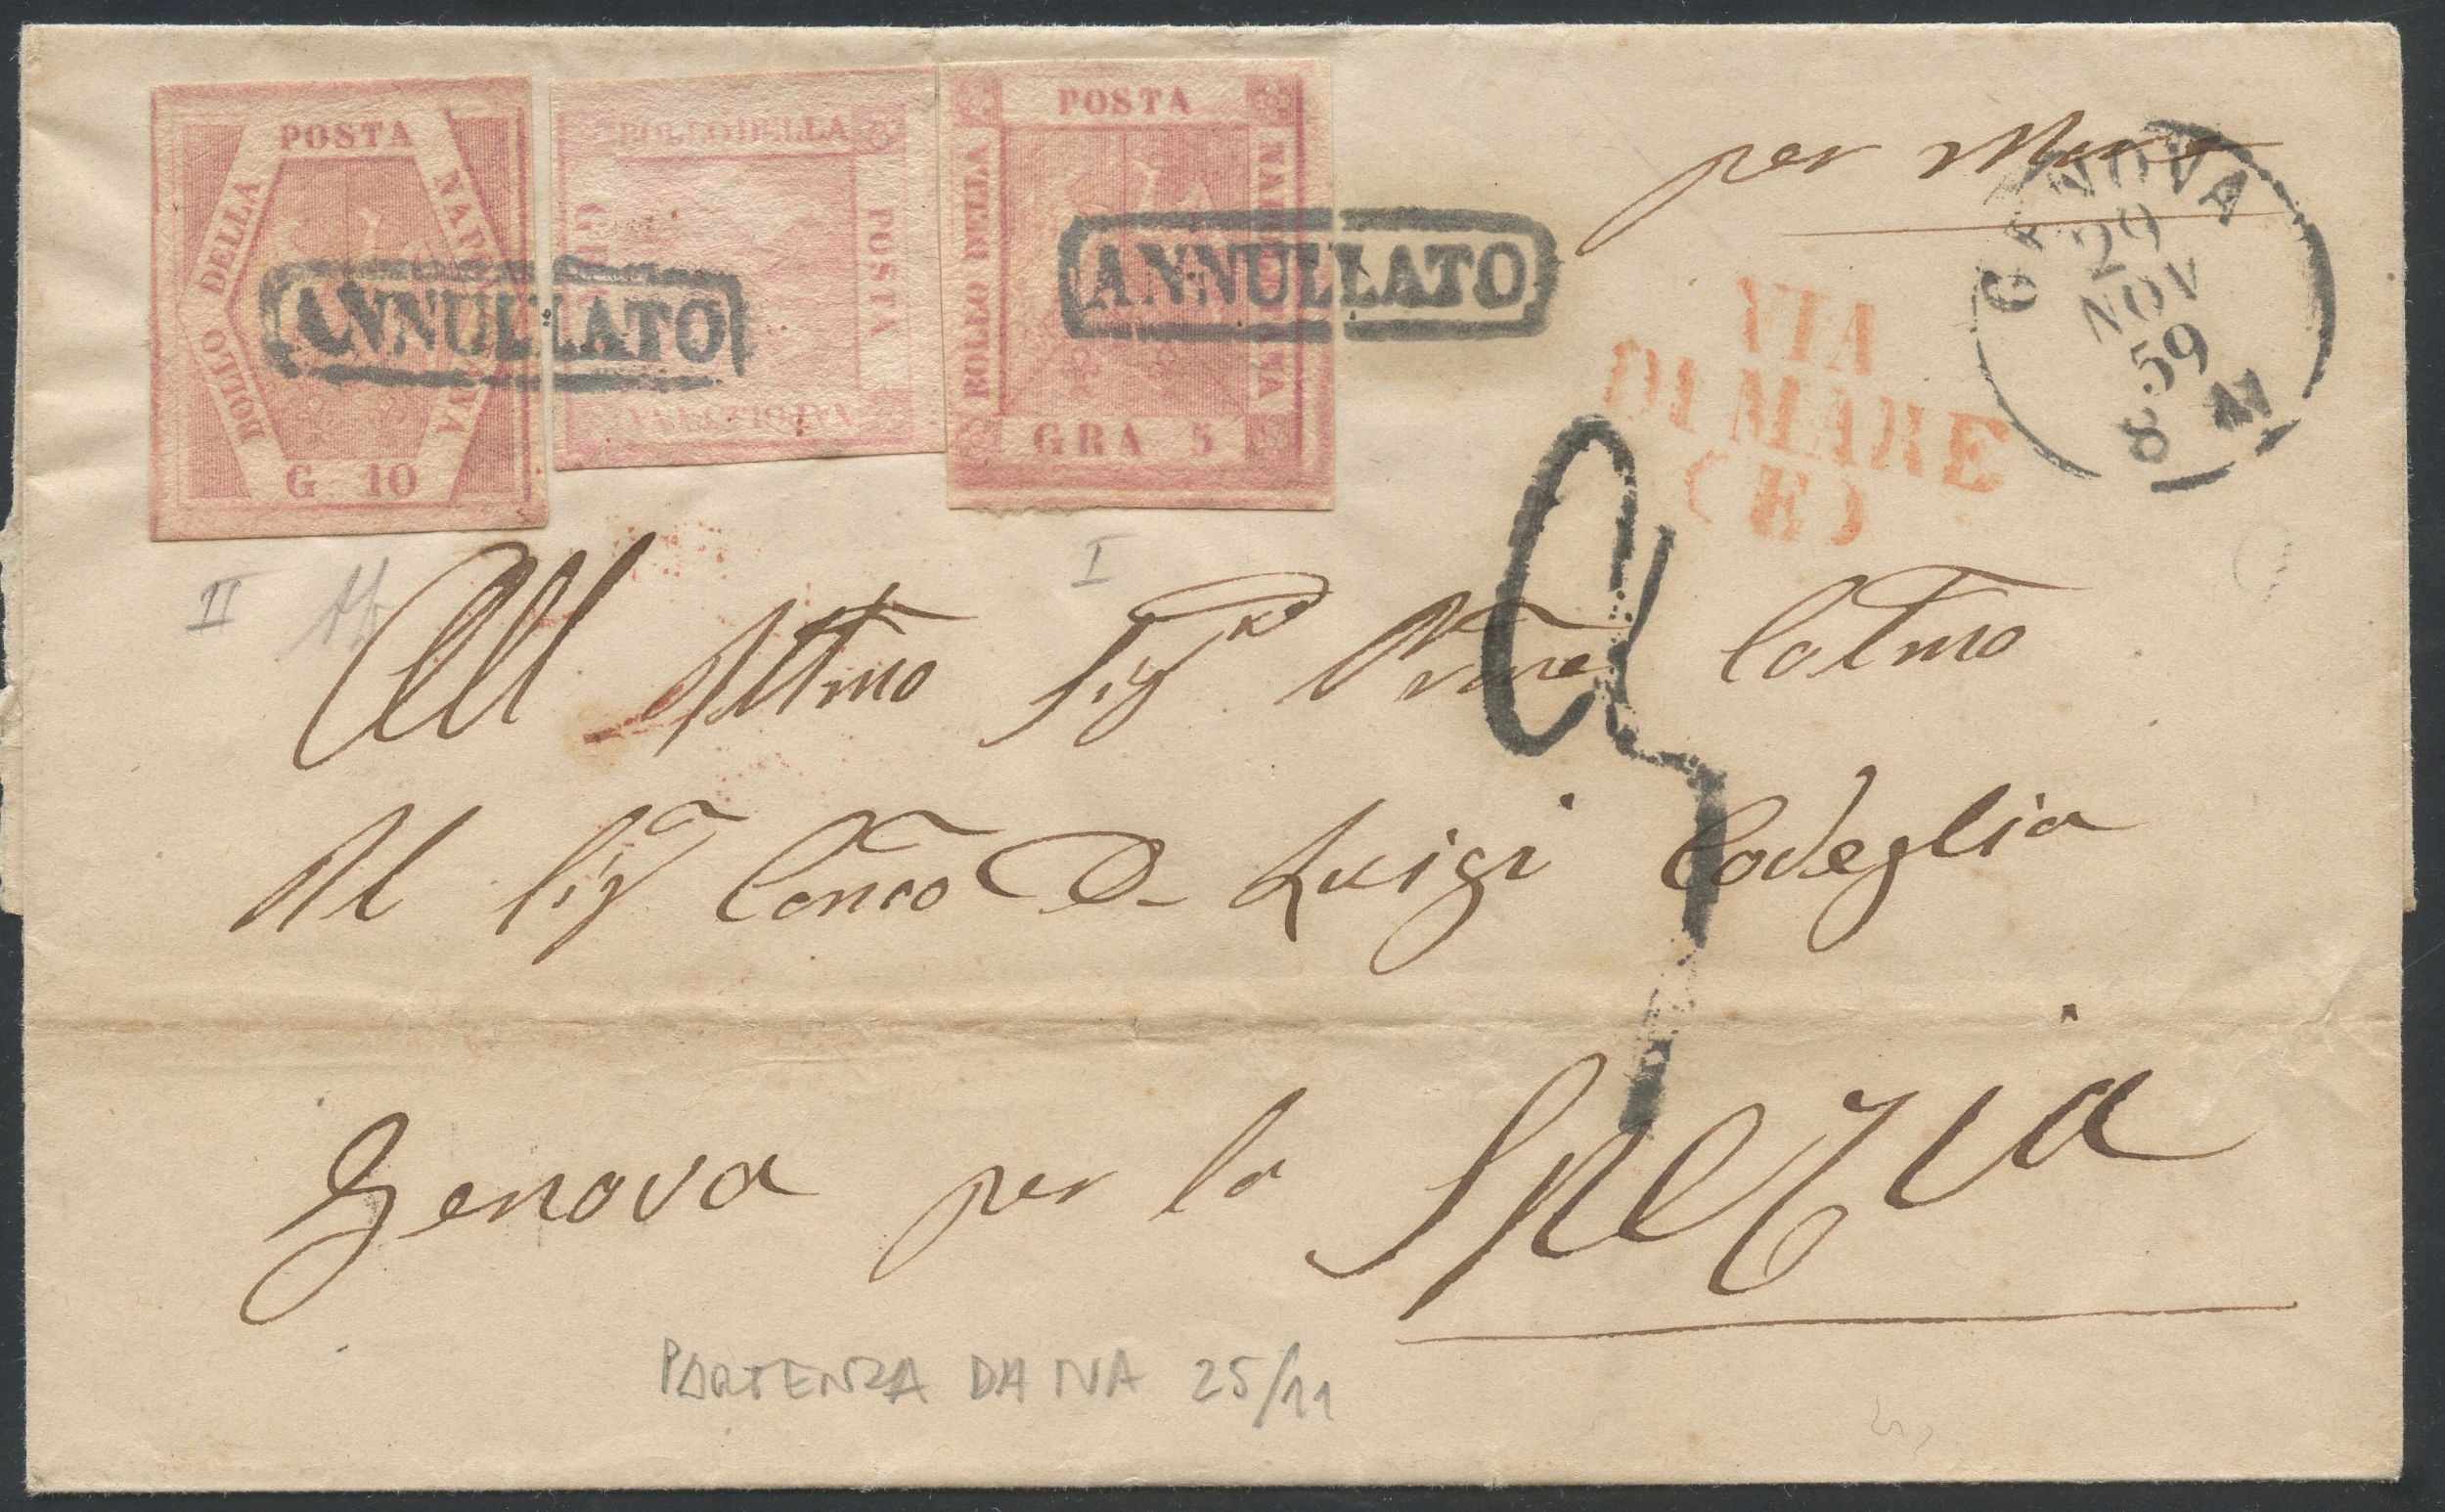 POSTA
BOLLO DELLA
NAPOLETANA
G 10
ANNULLATO
BOLLO DELLA
POSTA
POSTA
BOLLO DELLA
GRA 5
ANNULLATO
per Mare
GENOVA
29
NOV
59
8 M
VIA
DI MARE
(E)
II
I
All Ill.mo Sig.r
Al Sig.r Luigi Codeglia
Genova per la Spezia
PARTENZA DA NA 25/11